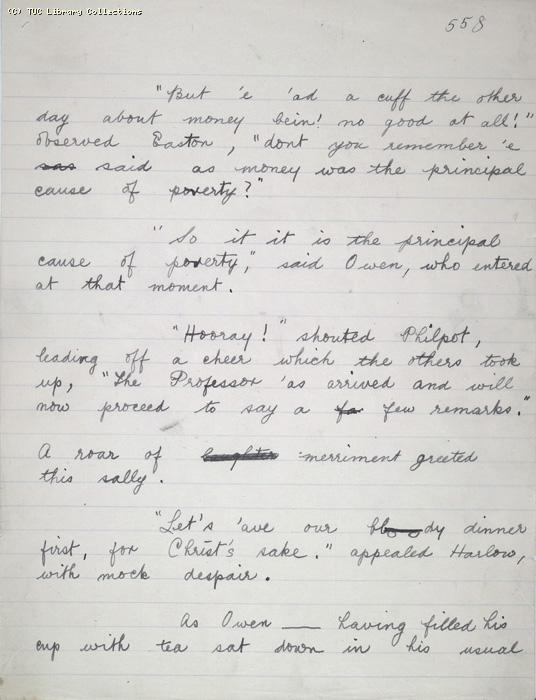 (C) TUC Library Collections
558
"But 'e 'ad a cuff the other
day about money bein' no good at all!"
observed Easton, "dont you remember 'e
sas said as money was the principal
cause of poverty?"
"So it it is the principal
cause of poverty," said Owen, who entered
at that moment.
"Hooray!" shouted Philpot,
leading off a cheer which the others took
up, "The Professor 'as arrived and will
now proceed to say a fa few remarks."
A roar of laughter merriment greeted
this sally.
"Let's 'ave our bloody dinner
first, for Christ's sake." appealed Harlow,
with mock despair.
As Owen — having filled his
cup with tea sat down in his usual